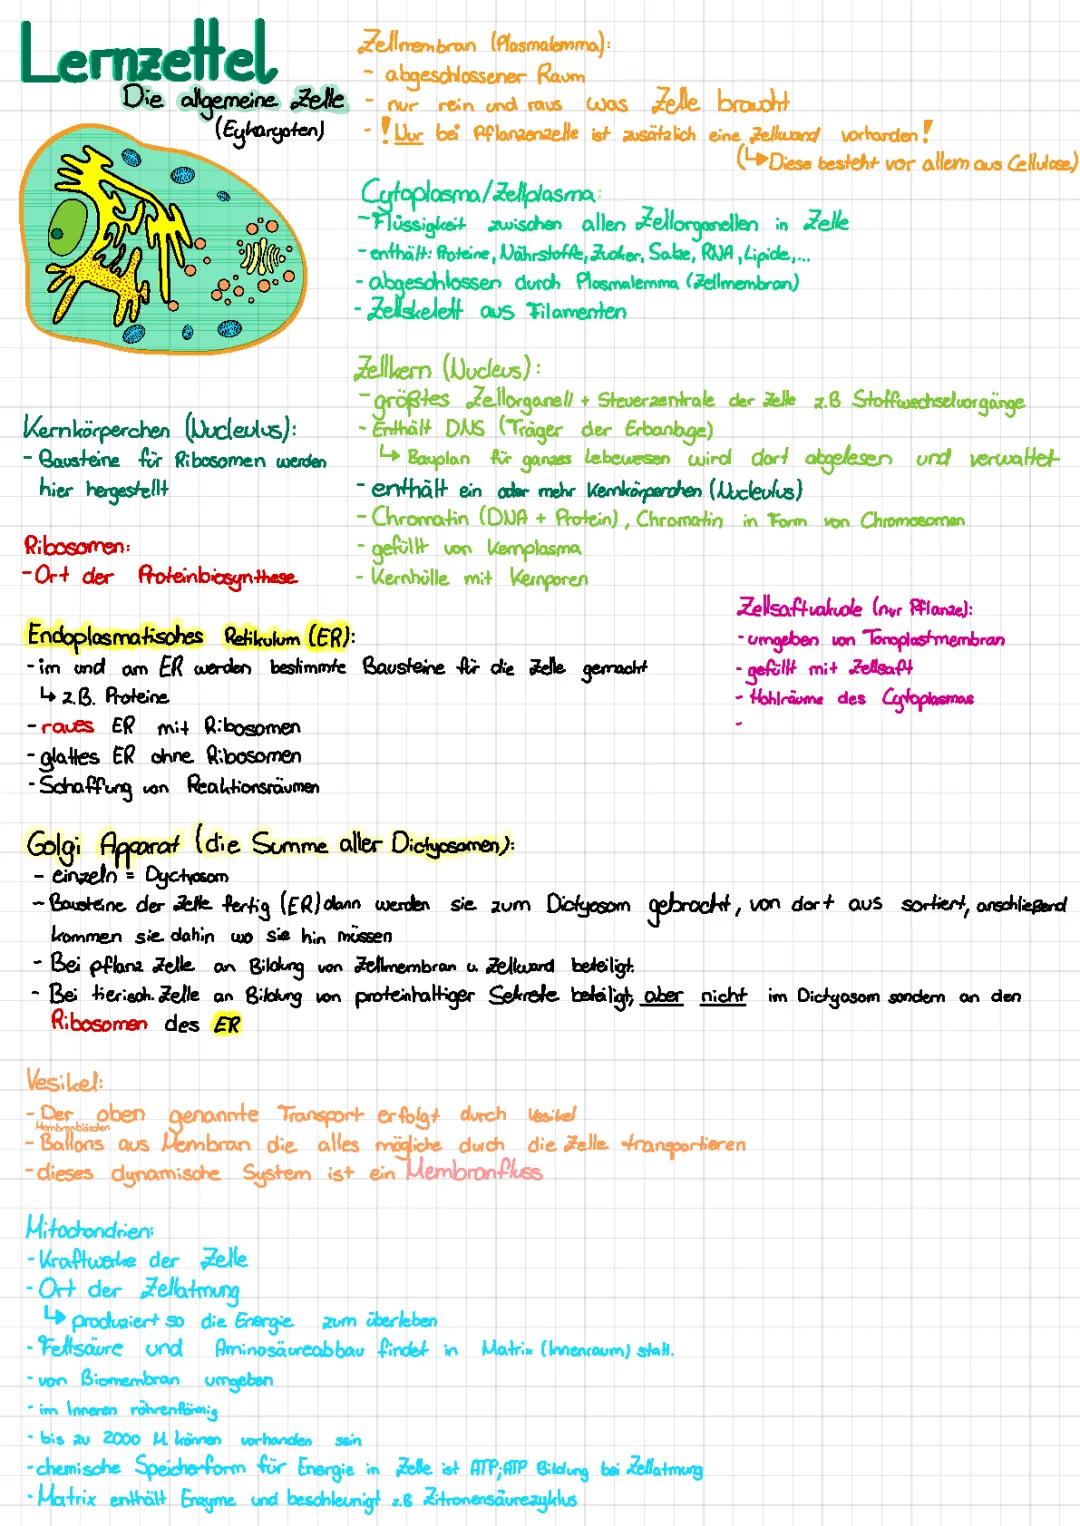 Lernzettel
Die allgemeine Zelle
(Eykaryoten)
Zellmembran (Plasmalemma):
- abgeschlossener Raum
- nur rein und raus was Zelle braucht
- ! Nur bei Pflanzenzelle ist zusätzlich eine Zellwand vorhanden!
(↳Diese besteht vor allem aus Cellulose)
Cytoplasma/Zellplasma:
- Flüssigkeit zwischen allen Zellorganellen in Zelle
- enthält: Proteine, Nährstoffe, Zucker, Salze, RNA, Lipide,...
- abgeschlossen durch Plasmalemma (Zellmembran)
- Zellskelett aus Filamenten
Zellkern (Nucleus):
- größtes Zellorganell + Steuerzentrale der Zelle z.B Stoffwechselvorgänge
- Enthält DNS (Träger der Erbanlage)
↳ Bauplan für ganzes Lebewesen wird dort abgelesen und verwaltet
- enthält ein oder mehr Kernkörperchen (Nucleulus)
- Chromatin (DNA + Protein), Chromatin in Form von Chromosomen
- gefüllt von Kernplasma
- Kernhülle mit Kernporen
Kernkörperchen (Nucleulus):
- Bausteine für Ribosomen werden
hier hergestellt
Ribosomen:
- Ort der Proteinbiosynthese
Zellsaftvakuole (nur Pflanze):
- umgeben von Tonoplastmembran
- gefüllt mit Zellsaft
- Hohlräume des Cytoplasmas
-
Endoplasmatisches Retikulum (ER):
- im und am ER werden bestimmte Bausteine für die Zelle gemacht
↳ z.B. Proteine
- raues ER mit Ribosomen
- glattes ER ohne Ribosomen
- Schaffung von Reaktionsräumen
Golgi Apparat (die Summe aller Dictyosomen):
- einzeln = Dyctyosom
- Bausteine der Zelle fertig (ER) dann werden sie zum Dictyosom gebracht, von dort aus sortiert, anschließend
kommen sie dahin wo sie hin müssen
- Bei pflanz Zelle an Bildung von Zellmembran u. Zellwand beteiligt.
- Bei tierisch. Zelle an Bildung von proteinhaltiger Sekrete beteiligt, aber nicht im Dictyosom sondern an den
Ribosomen des ER
Vesikel:
- Der oben genannte Transport erfolgt durch Vesikel
Membranbläschen
- Ballons aus Membran die alles mögliche durch die Zelle transportieren
- dieses dynamische System ist ein Membranfluss
Mitochondrien:
- Kraftwerke der Zelle
- Ort der Zellatmung
↳ produziert so die Energie zum überleben
- Fettsäure und Aminosäureabbau findet in Matrix (Innenraum) statt.
- von Biomembran umgeben
- im Inneren röhrenförmig
- bis zu 2000 M. können vorhanden sein
- chemische Speicherform für Energie in Zelle ist ATP; ATP Bildung bei Zellatmung
- Matrix enthält Enzyme und beschleunigt z.B Zitronensäurezyklus